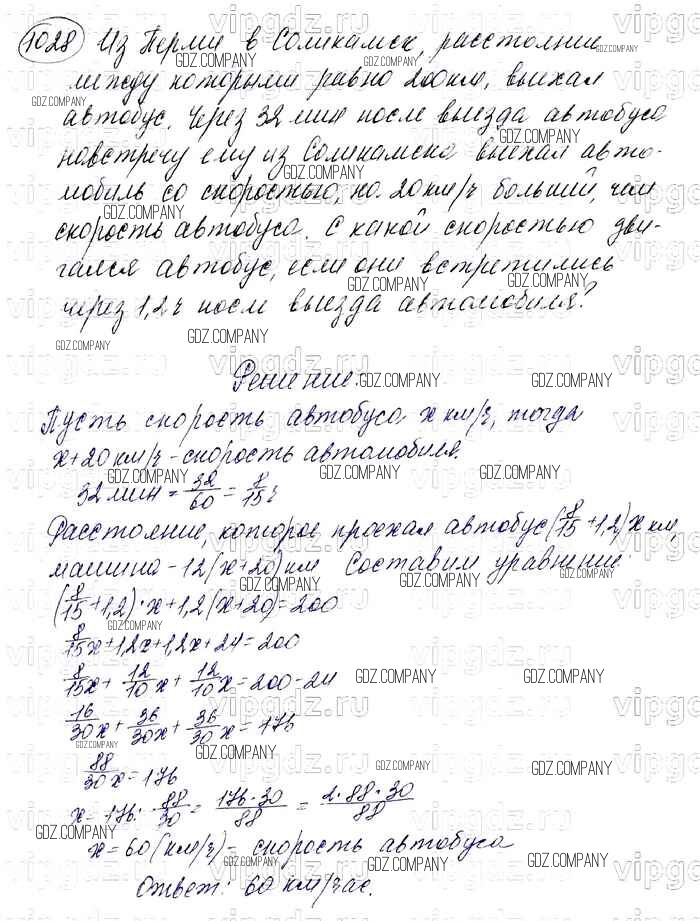 1028 Из Перми в Соликамск, расстояние
между которыми равно 200км, выехал
автобус. Через 32 мин после выезда автобуса
навстречу ему из Соликамска выехал авто-
мобиль со скоростью, на 20км/ч больший, чем
скорость автобуса. С какой скоростью дви-
гался автобус, если они встретились
через 1,2ч после выезда автомобиля?
Решение.
Пусть скорость автобуса x км/ч, тогда
x+20км/ч - скорость автомобиля.
32мин = 32/60 = 8/15 ч
Расстояние, которое проехал автобус (8/15 + 1,2)x км,
машина - 12(x+20) км Составим уравнение:
(8/15 + 1,2)·x+1,2(x+20)=200
8/15x+1,2x+1,2x+24=200
8/15x + 12/10x + 12/10x = 200-24
16/30x + 36/30x + 36/30x = 176
88/30x = 176
x = 176 · 88/30 = 176·30/88 = 2·88·30/88
x = 60 (км/ч) - скорость автобуса
Ответ: 60 км/час.
GDZ.COMPANY
vipgdz.ru